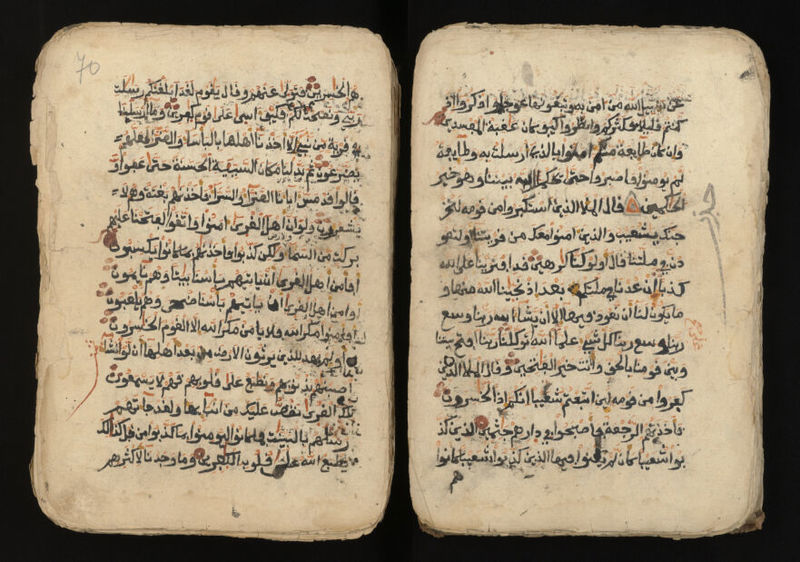 عن سبيل الله من امن به وتبغونها عوجا واذكروا اذ
كنتم قليلا فكثركم وانظروا كيف كان عقبة المفسدين
وان كان طايفة منكم امنوا بالذي ارسلت به وطايفة
لم يومنوا فاصبروا حتى يحكم الله بيننا وهو خير
الحكمين قال الملا الذين استكبروا من قومه لنخر
جنك يشعيب والذين امنوا معك من قريتنا او لتعو
دن في ملتنا قال اولو كنا كرهين قد افترينا على الله
كذبا ان عدنا في ملتكم بعد اذ نجينا الله منها و
ما يكون لنا ان نعود فيها الا ان يشاء الله ربنا وسع
ربنا وسع ربنا كل شيء علما الله توكلنا ربنا افتح بيننا
وبين قومنا بالحق وانت خير الفتحين وقال الملا الذين
كفروا من قومه لين اتبعتم شعيبا انكم اذا لخسرون
فاخذتهم الرجفة فاصبحوا في دارهم جثمين الذين كذ
بوا شعيبا كان لم يغنوا فيها الذين كذبوا شعيبا كانوا
هم
70
هم الخسرين فتولى عنهم وقال يقوم لقد ابلغتكم رسلت
ربي ونصحت لكم فكيف اسى على قوم كفرين وما ارسلنا
في قرية من نبي الا اخذنا اهلها بالباسا والضرا لعلهم
يضرعون ثم بدلنا مكان السيية الحسنة حتى عفوا و
قالوا قد مس اباءنا الضرا والسرا فاخذنهم بغتة وهم لا
يشعرون ولو ان اهل القرى امنوا واتقوا لفتحنا عليهم
بركت من السما ولكن كذبوا فاخذنهم بما كانوا يكسبون
افامن اهل القرى ان ياتيهم باسنا بيتا وهم نايمون
اوامن اهل القرى ان ياتيهم باسنا ضحى وهم يلعبون
افامنوا مكر الله فلا يامن مكر الله الا القوم الخسرون
اولم يهد للذين يرثون الارض من بعد اهلها ان لو نشا
اصبنهم بذنوبهم ونطبع على قلوبهم فهم لا يسمعون
تلك القرى نقص عليك من انبايها ولقد جاتهم
رسلهم بالبينت فما كانوا ليومنوا بما كذبوا من قبل كذلك
يطبع الله على قلوب الكفرين وما وجدنا لاكثرهم